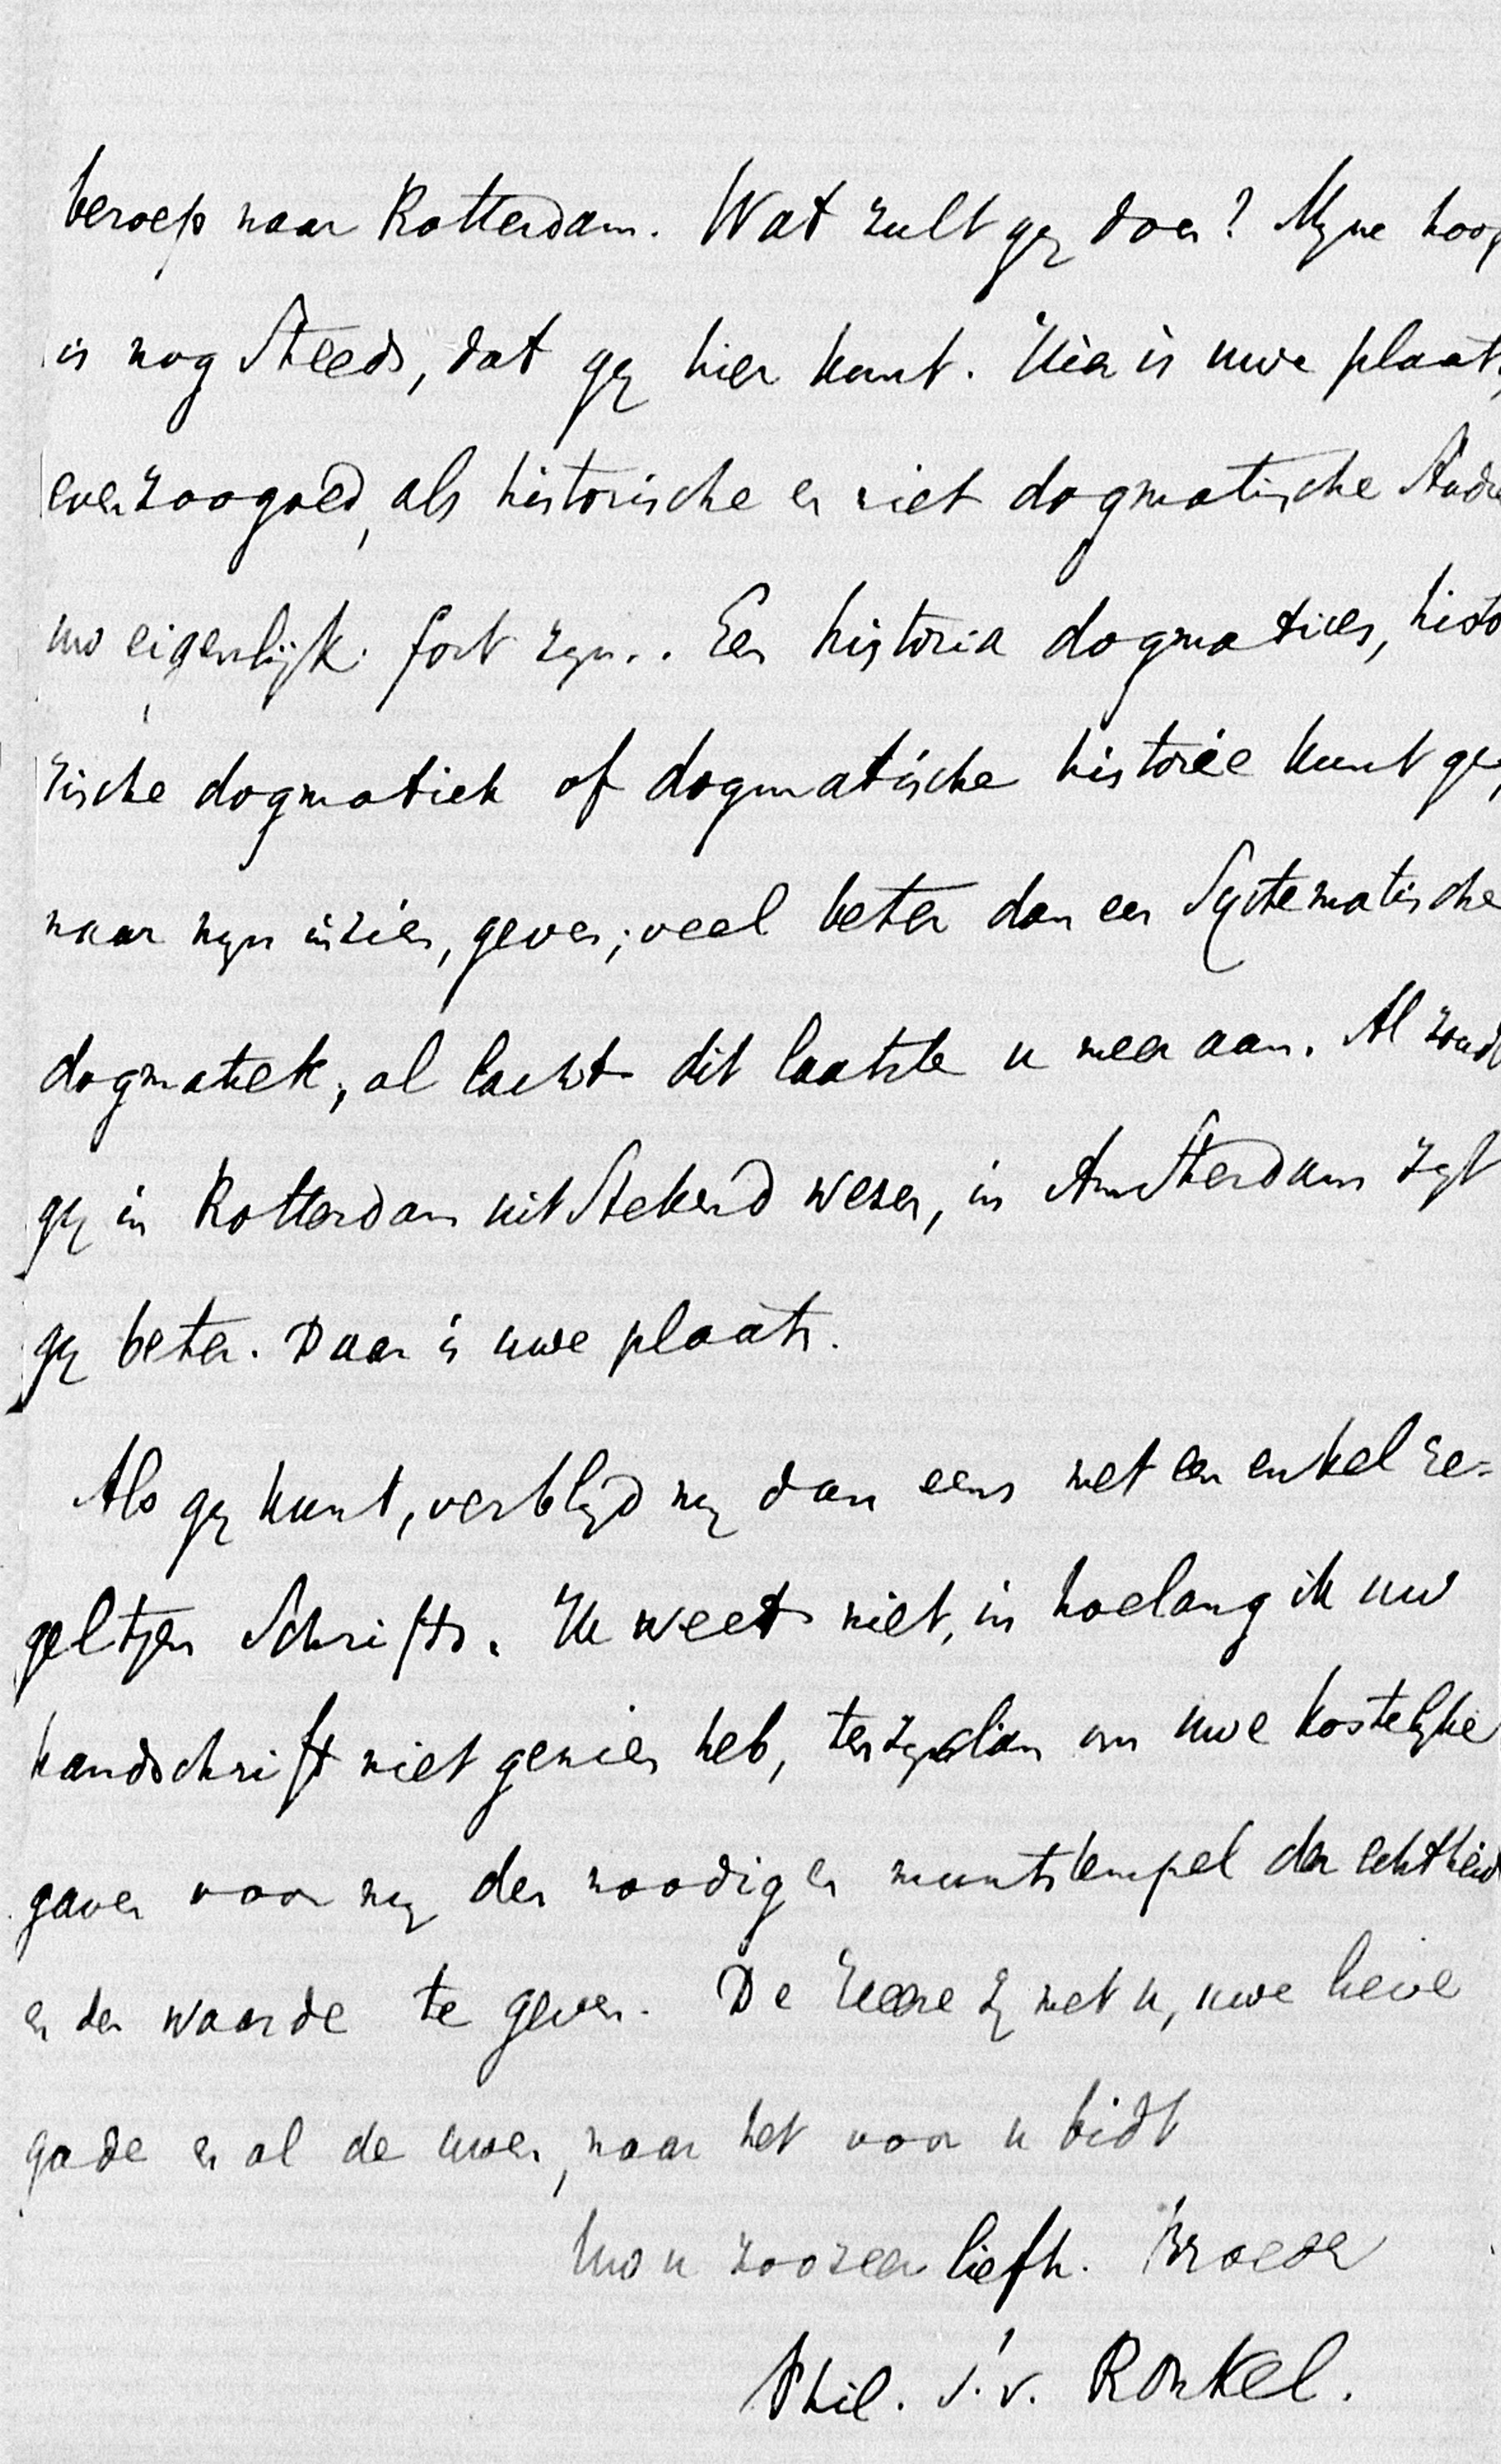 beroep naar Rotterdam. Wat zult gy doen? Myne hoop
is nog steeds, dat gy hier komt. Hier is uwe plaats,
evenzoogoed, als historische en niet dogmatische
uw eigenlijk fort zyn.. Een historia dogmatices, histo
rische dogmatiek of dogmatische historie kunt gy,
naar myn inzien, geven; veel beter dan een Systematische
dogmatiek, al lacht dit laatste u meer aan. Al zoudt
gy in Rotterdam uitstekend wezen, in Amsterdam zyt
gy beter. Daar is uwe plaats.
Als gy kunt, verblyd my dan eens met een enkel re-
geltjen Schrifts. Ik weet niet, in hoelang ik uw
handschrift niet gezien heb, om uwe kostelyke
gaven voor my den noodigen muntstempel der echtheid
en der waarde te geven. De Heere zy met u, uwe lieve
gade en al de uwen, naar het voor u bidt
Uw u zoozeer liefh. Broeder
Phil. S. v. Ronkel.